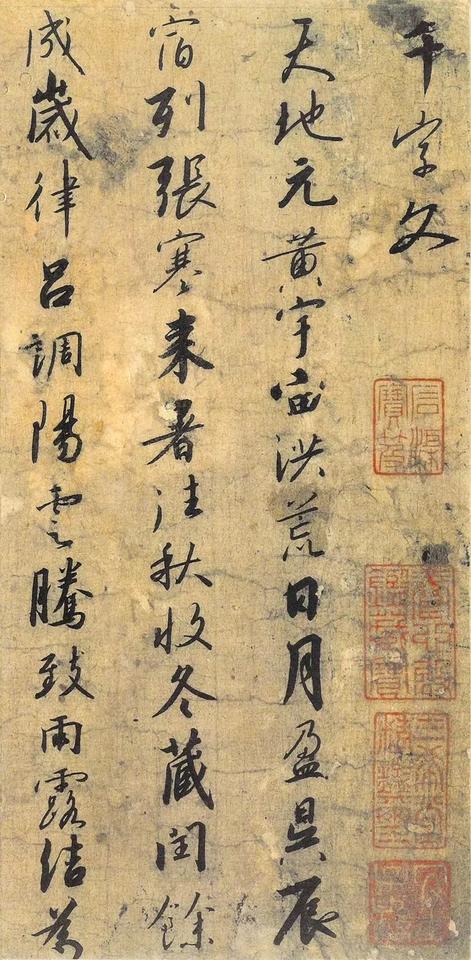 千字文
天地元黄宇宙洪荒日月盈昃辰
宿列張寒来暑往秋收冬藏閏餘
成歲律呂調陽雲騰致雨露結為